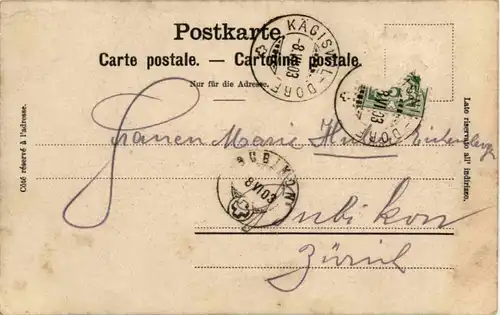 Postkarte.
Carte postale. — Cartolina postale.
Nur für die Adresse.
Côté réservé à l'adresse.
Lato riservato all' indirizzo.
KÄGISWIL-DORF
-8.VI.03
DORF
8 VI 03
Marie
RUBIKON
8 VI 03
Rubikon
Zürich